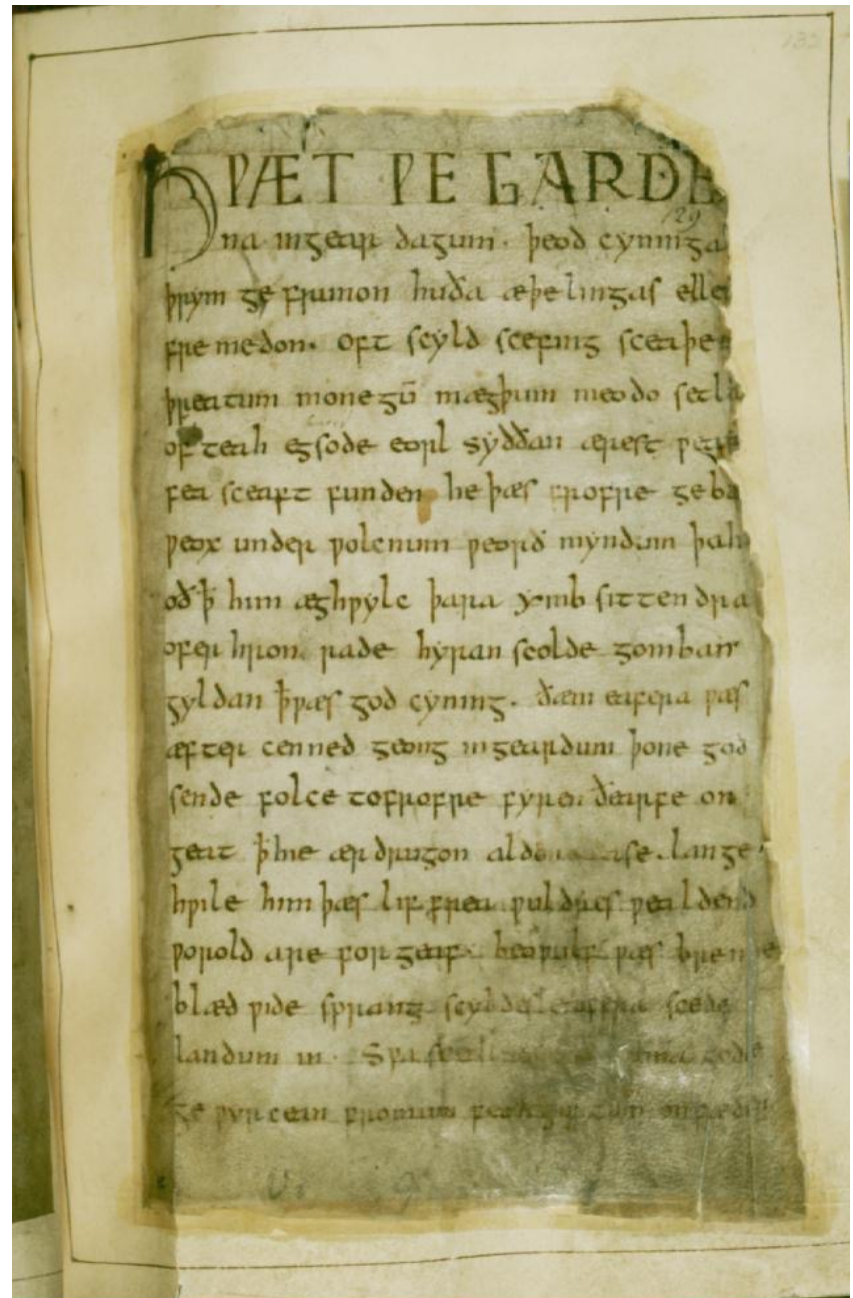 HǷÆT ǷE GARDE
na ingear dagum. þeod cyninga
þrym ge frunon huða æþelingas elle
fremedon. oft scyld scefing sceaþe
þreatum monegū mægþum meodo setla
of teah egsode eorl syððan ærest ƿear
fea sceaft funden he þæs frofre geba
ƿeox under ƿolcnum ƿeorð myndum þah
oð ꝥ him æghƿylc þara ymb sittendra
ofer hron rade hyran scolde gomban
gyldan ꝥ ƿæs god cyning. ðæm eafera ƿæs
æfter cenned geong ingeardum þone god
sende folce tofrofre fyren ðearfe on
geat ꝥ hie ær drugon aldor ase. lange
hƿile him þæs lif frea ƿuldres ƿealdend
ƿorold are for geaf. beoƿulf ƿæs breme
blæd ƿide sprang scyldes eafera scede
landum in. Sƿa sceal ma gode
ge ƿyrcean fromum feoh giftum on fæder
132
129